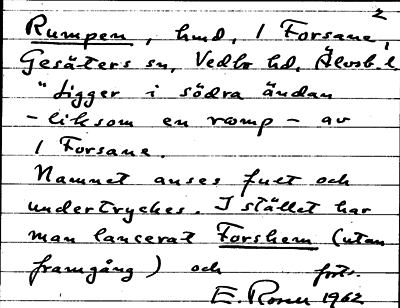 2
Rumpen, hmd, 1 Forsane,
Gesäters sn, Vedbo hd, Älvsb. l
"Ligger i södra ändan
- liksom en romp - av
1 Forsane.
Namnet anses fult och
undertryckes. I stället har
man lancerat Forshem (utan
framgång) och forts.
E. Rosen 1962